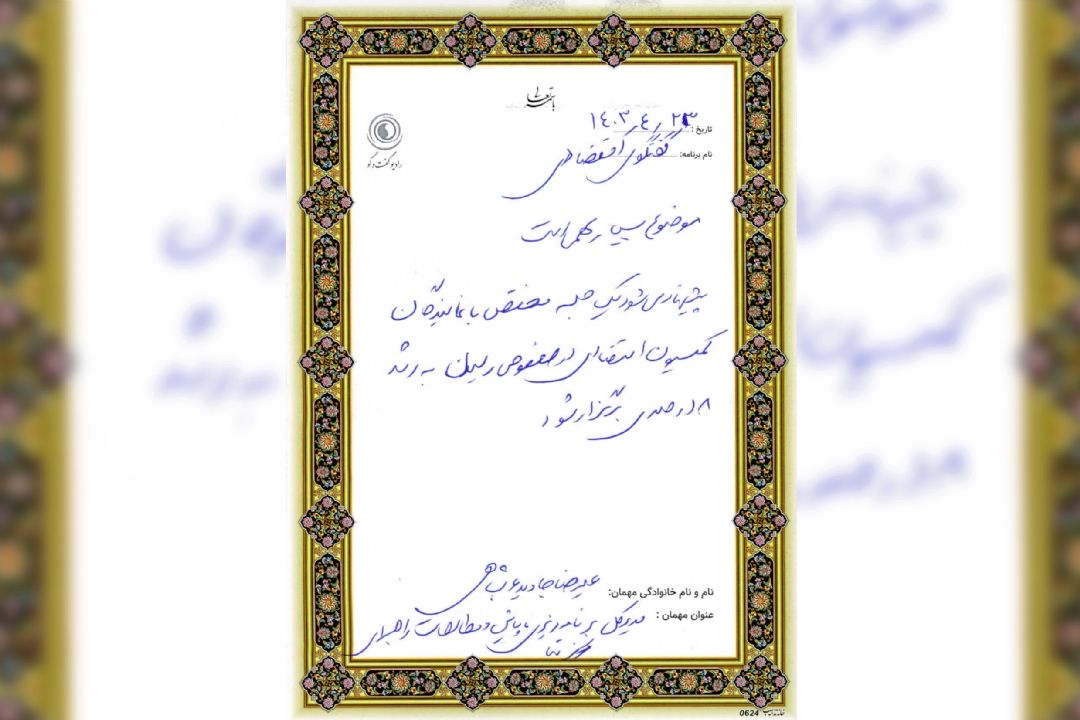 باسمه تعالی
رادیو گفت و گو
تاریخ: ۱۴۰۳/۴/۲۳
نام برنامه: گفتگوی اقتصادی
موضوع بسیار مهم است
پیشنهاد می شود یک جلسه مختص با نمایندگان
کمیسیون اقتصادی در خصوص رسیدن به رشد
۸ درصدی برگزار شود
نام و نام خانوادگی مهمان: علیرضا جاوید عربشاهی
عنوان مهمان: مدیرکل برنامه ریزی، پایش و مطالعات راهبردی
0624